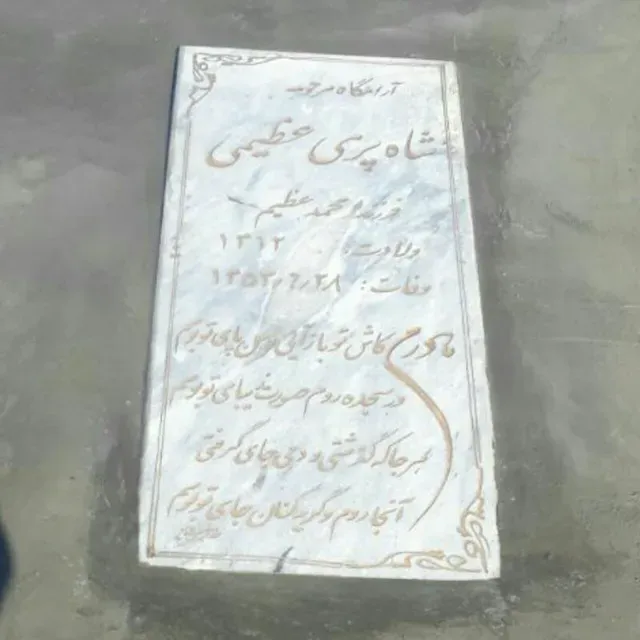 آرامگاه مرحومه
شاه پری عظیمی
فرزند: محمد عظیم
ولادت: ۱۳۱۲
وفات: ۱۳۵۳٫۶٫۲۸
مادرم کاش تو باز آیی و من پای تو بوسم
در سجده روم صورت زیبای تو بوسم
هر جا که گذشتی و دمی جای گرفتی
آنجا روم و گریه کنان جای تو بوسم